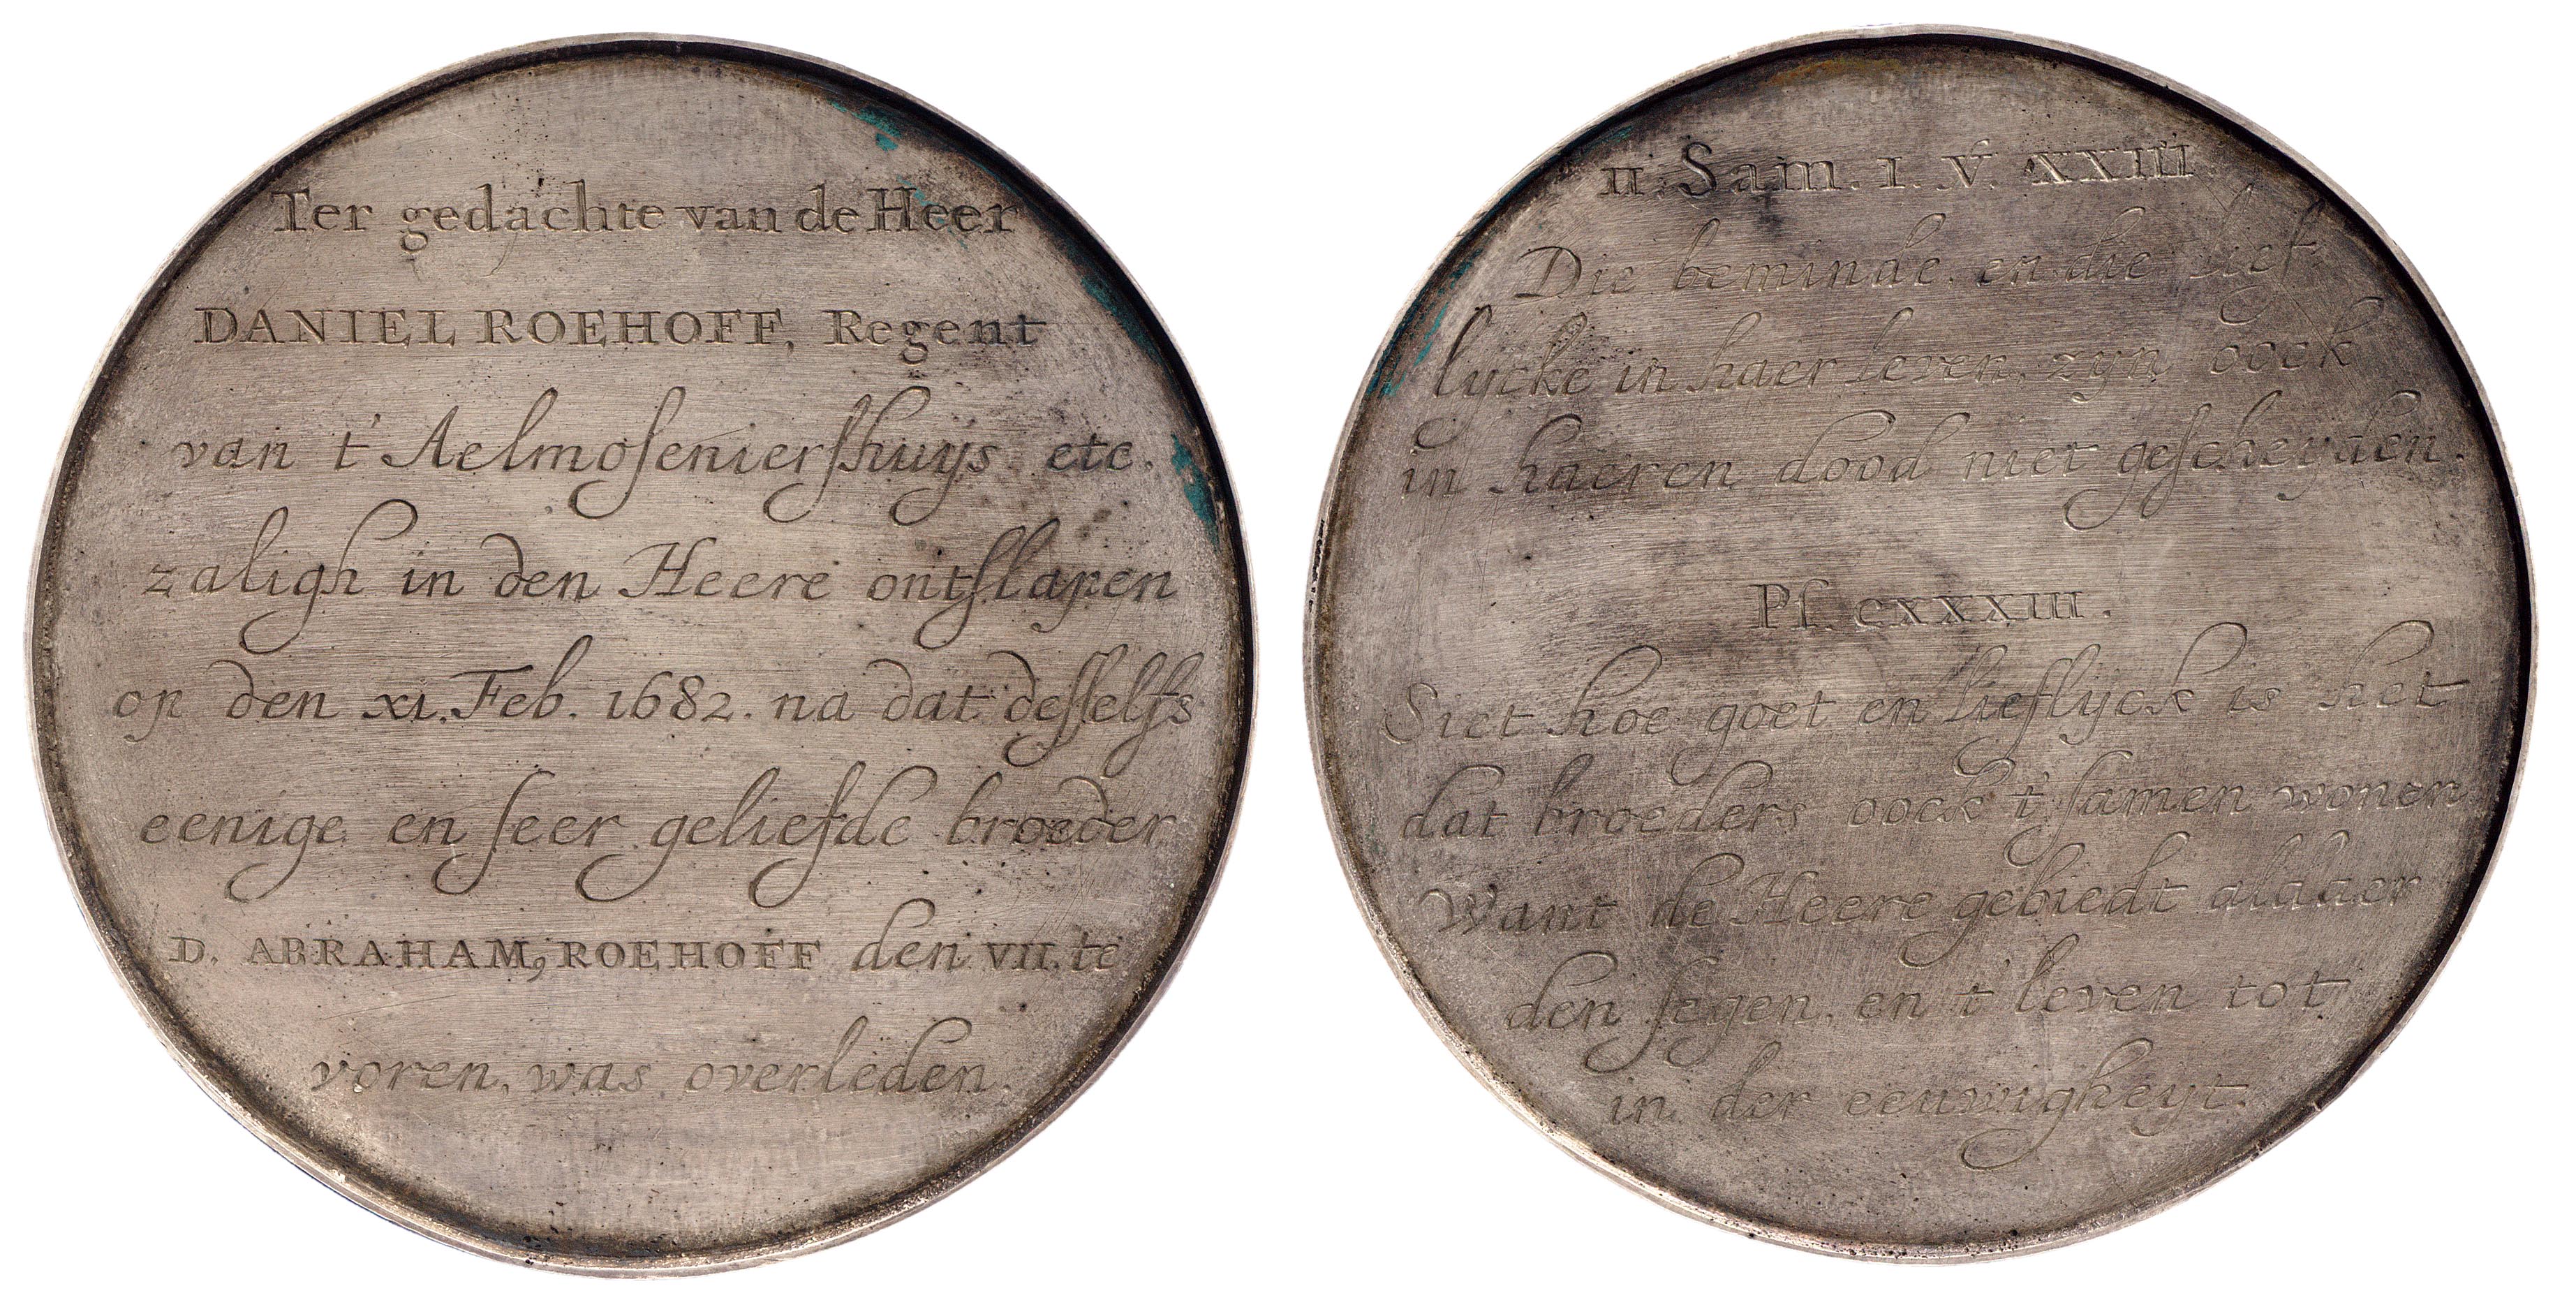 Ter gedachte van de Heer
DANIEL ROEHOFF, Regent
van t' Aelmoſenierſhuijs etc.
zaligh in den Heere ontſlapen
op den XI. Feb. 1682. na dat deſſelfs
eenige en ſeer geliefde broeder
D. ABRAHAM, ROEHOFF den VII. te
voren, was overleden.
II. Sam. I. V. XXIII.
Die beminde en die lief
lijcke in haer leven, zijn oock
in haeren dood niet geſcheyden.
Pſ. CXXXIII.
Siet hoe goet en lieflijck is het
dat broeders oock t' ſamen wonen
Want de Heere gebiedt aldaer
den ſegen, en t' leven tot
in der eeuwigheyt.